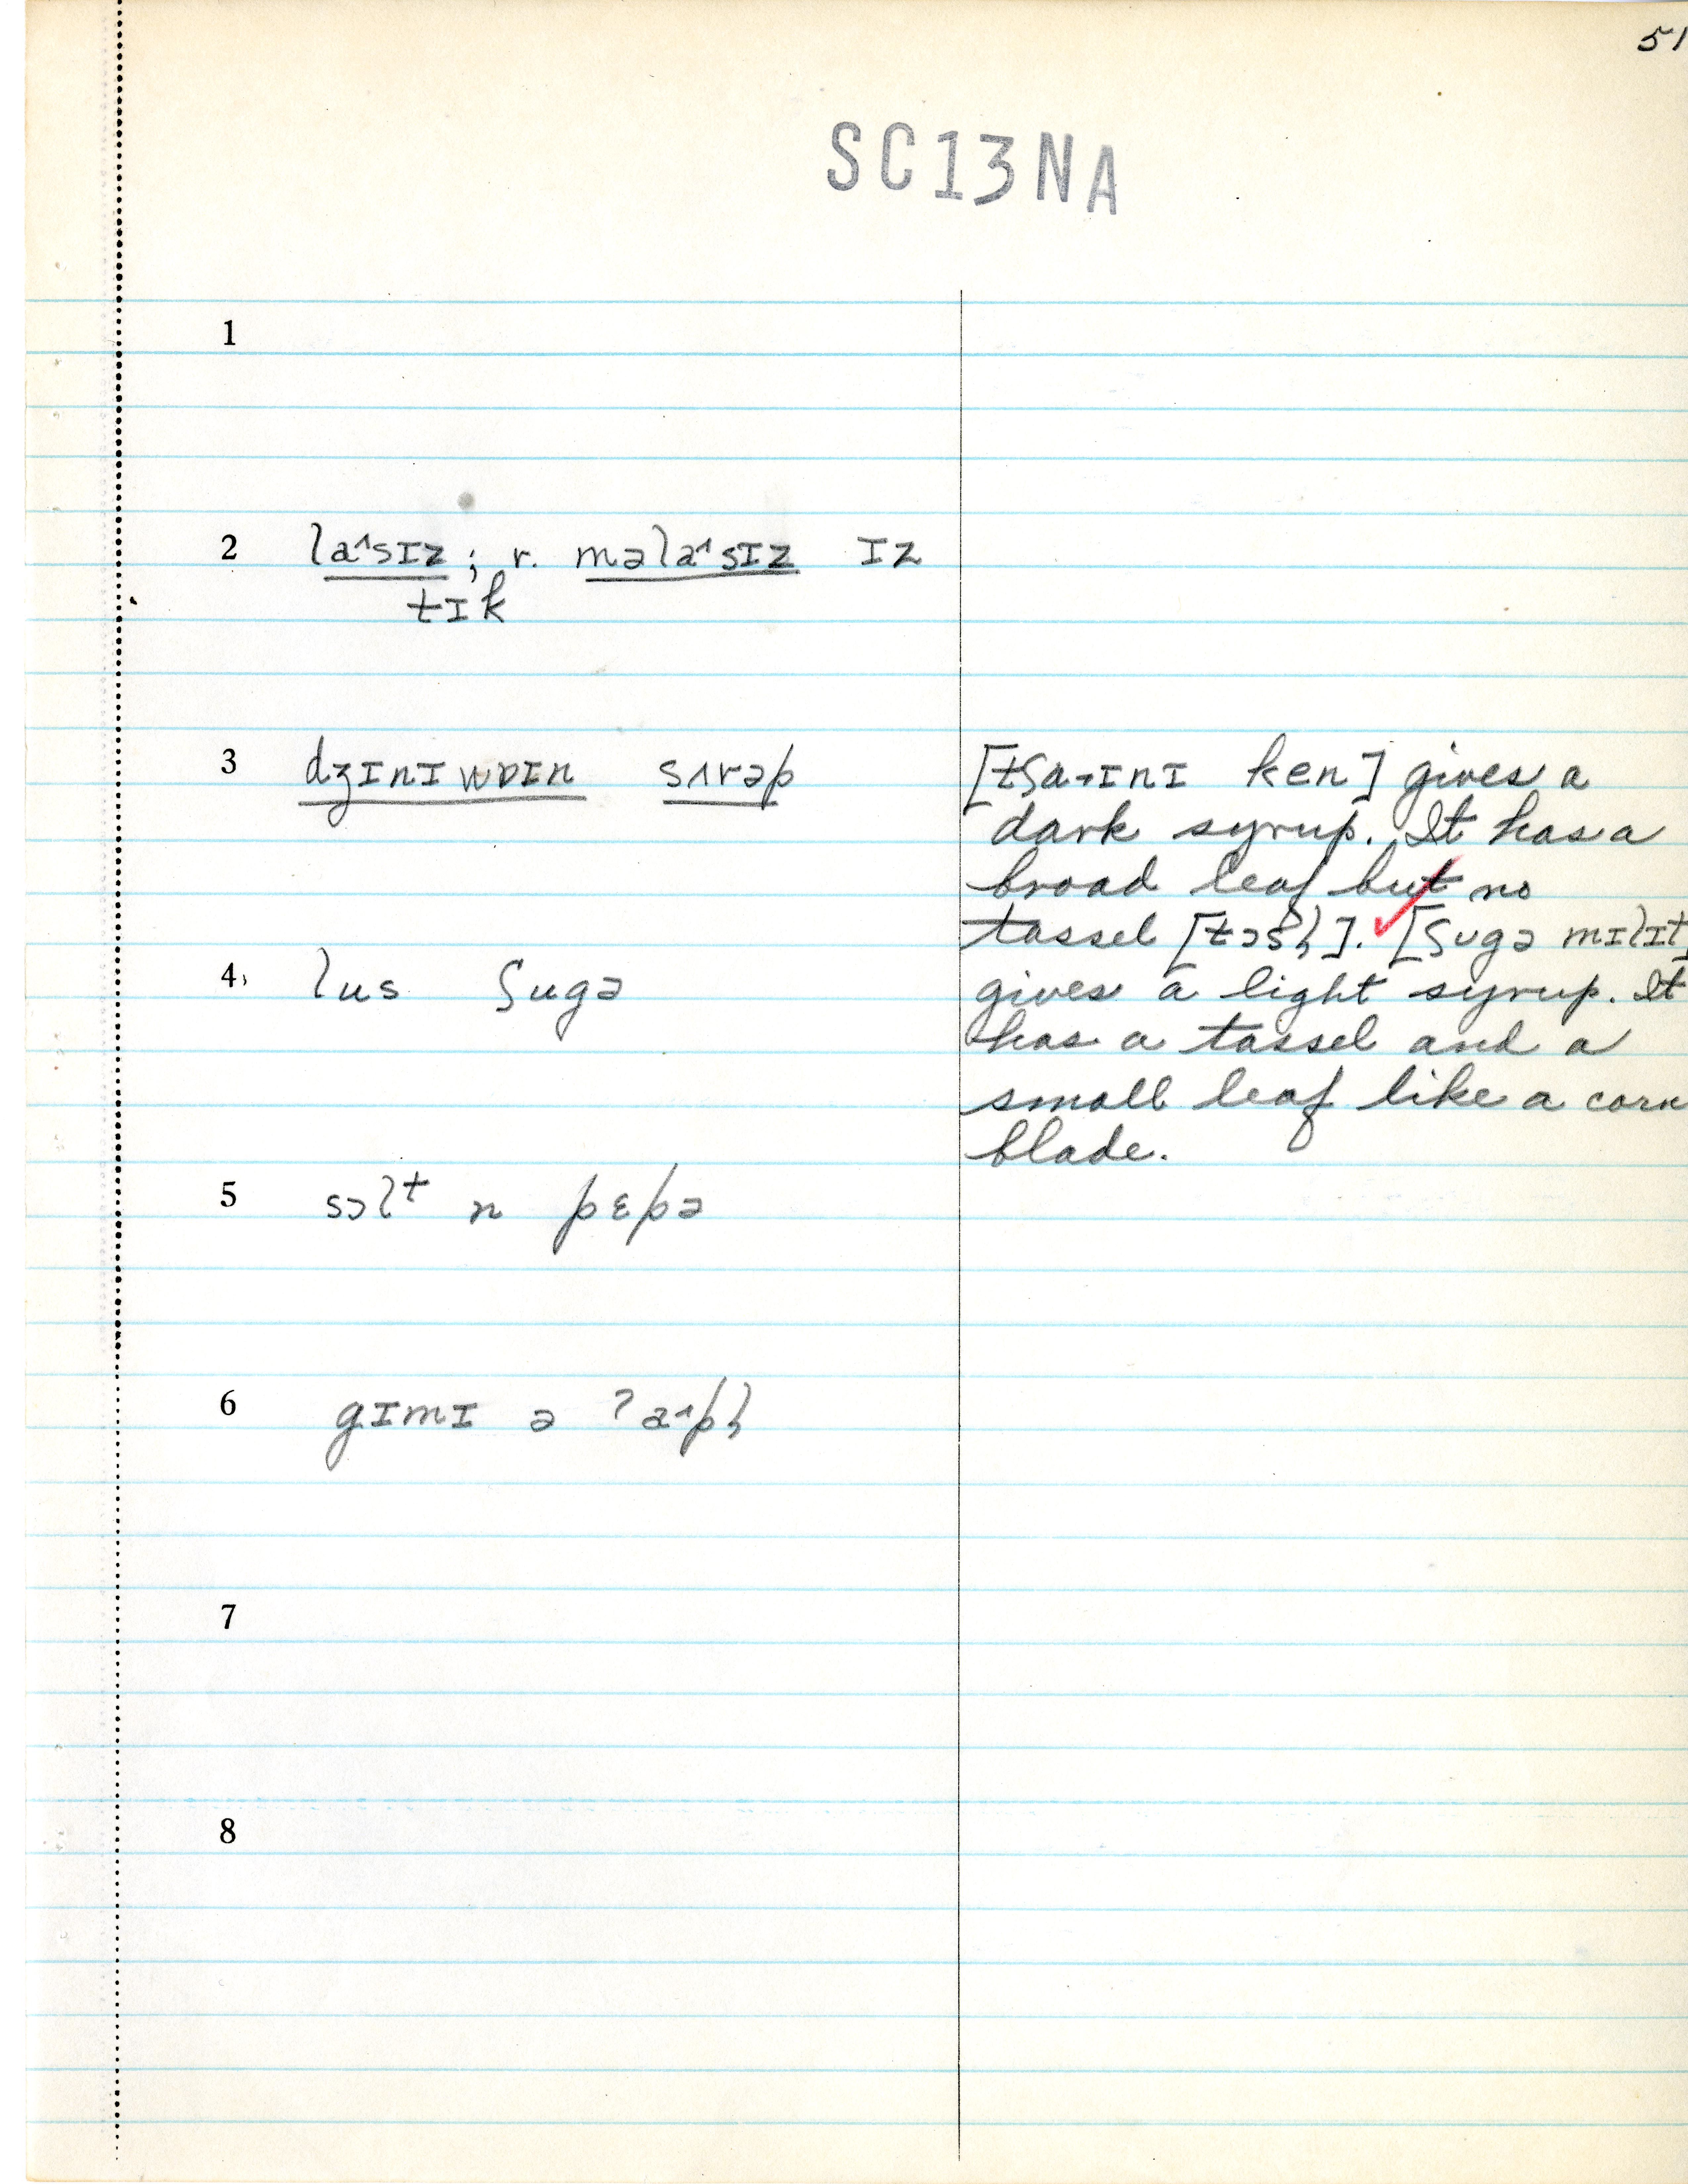 51
SC13NA
1
2 la˄sɪz; r. məla˄sɪz ɪz
tɪk
3 dʒɪnɪwɒɪn sʌrəp
[tʃa˧ɪnɪ ken] gives a
dark syrup. It has a
broad leaf but no
tassel [tɔsl̩]. ✓ [ʃugə mɪlɪt]
4 lus ʃugə
gives a light syrup. It
has a tassel and a
small leaf like a corn
blade.
5 sɔlᵗ n pɛpə
6 gɪmɪ ə ʔa˄pl̩
7
8